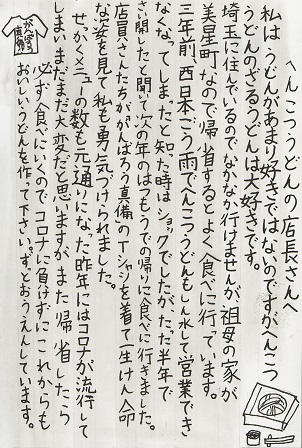 へんこつうどんの店長さんへ
私は、うどんがあまり好きではないのですがへんこつ
うどんのざるうどんは大好きです。
埼玉に住んでいるのでなかなか行けませんが、祖母の家が
美星町なので帰省するとよく食べに行ています。
三年前、西日本ごう雨でへんこつうどんもしん水して営業でき
なくなってしまったと知た時はショックでしたが、たった半年で
さい開したと聞いて次の年のはつもうでの帰りに食べに行きました。
店員さんたちが「がんばろう真備」のTシャツを着て一生けん命
な姿を見て私も勇気づけられました。
せっかくメニューの数も元通りになった昨年にはコロナが流行して
しまいまだまだ大変だと思いますがまた帰省したら
必ず食べにいくのでコロナに負けずにこれからも
おいしいうどんを作って下さい。ずっとおうえんしています。
がんばろう真備